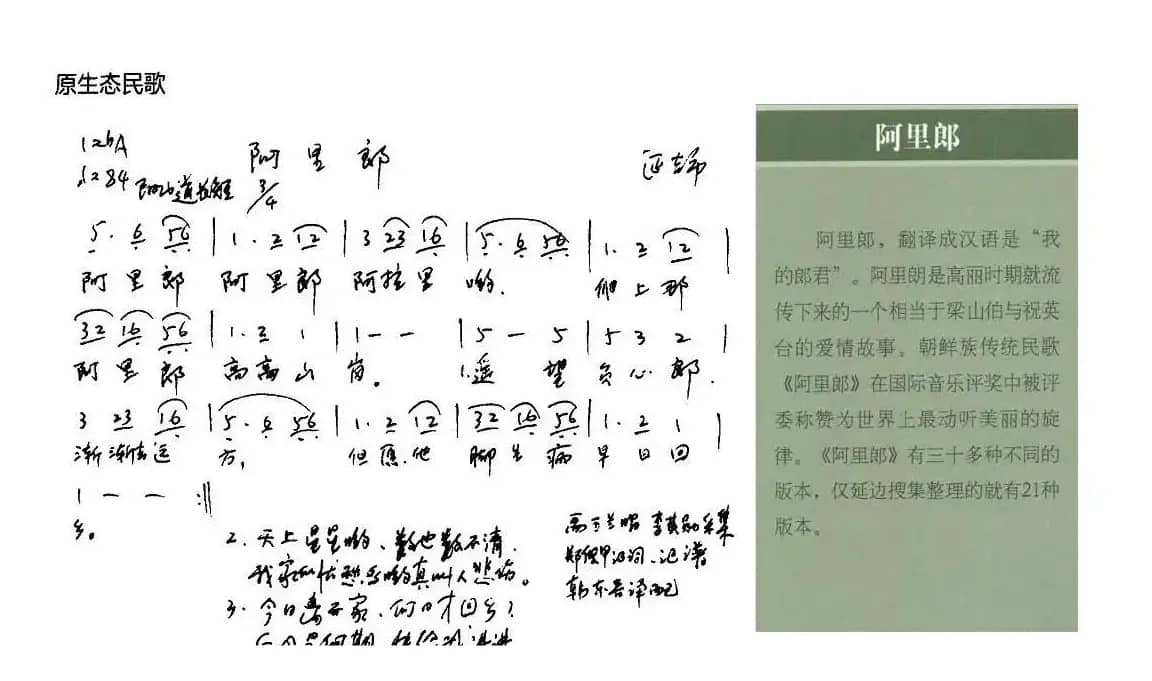 原生态民歌
1=bA
阿里郎
3/4
5· 6 56 | 1· 2 12 | 3 23 16 | 5· 6 56 | 1· 2 12 |
阿里郎 阿里郎 阿拉里 哟. 爬上那
32 16 56 | 1· 2 1 | 1 - - | 5 - 5 | 5 3 2 |
阿里郎 高高山岗。 1.遥望负心郎.
3 23 16 | 5· 6 56 | 1· 2 12 | 32 16 56 | 1· 2 1 |
渐渐去远方, 但愿他脚生病早日回
1 - - :||
乡。
2. 天上星星哟、数也数不清.
我家 真叫人悲伤。
3. 今日离开家、何日才回乡?
采集
记谱
韩东吾译配
阿里郎
阿里郎，翻译成汉语是“我
的郎君”。阿里朗是高丽时期就流
传下来的一个相当于梁山伯与祝英
台的爱情故事。朝鲜族传统民歌
《阿里郎》在国际音乐评奖中被评
委称赞为世界上最动听美丽的旋
律。《阿里郎》有三十多种不同的
版本，仅延边搜集整理的就有21种
版本。